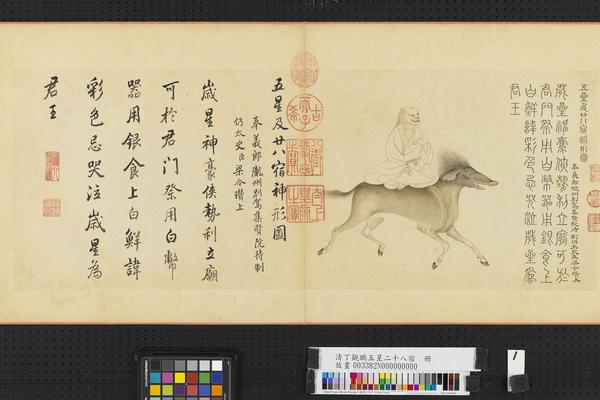 五星及廿八宿神形圖
奉義郎隴州別駕集賢院待制仍太史臣梁令瓚上
歲星神豪俠勢利立廟可於
君門祭用白幣器用銀食上
白鮮諱彩色忌哭泣歲星為
君王
古希天子
五星及廿八宿神形圖
奉義郎隴州別駕集賢院待制
仍太史臣梁令瓚上
歲星神豪俠勢利立廟
可於君門祭用白幣
器用銀食上白鮮諱
彩色忌哭泣歲星為
君王
清丁觀鵬五星二十八宿 冊
故畫 003382N000000000
1